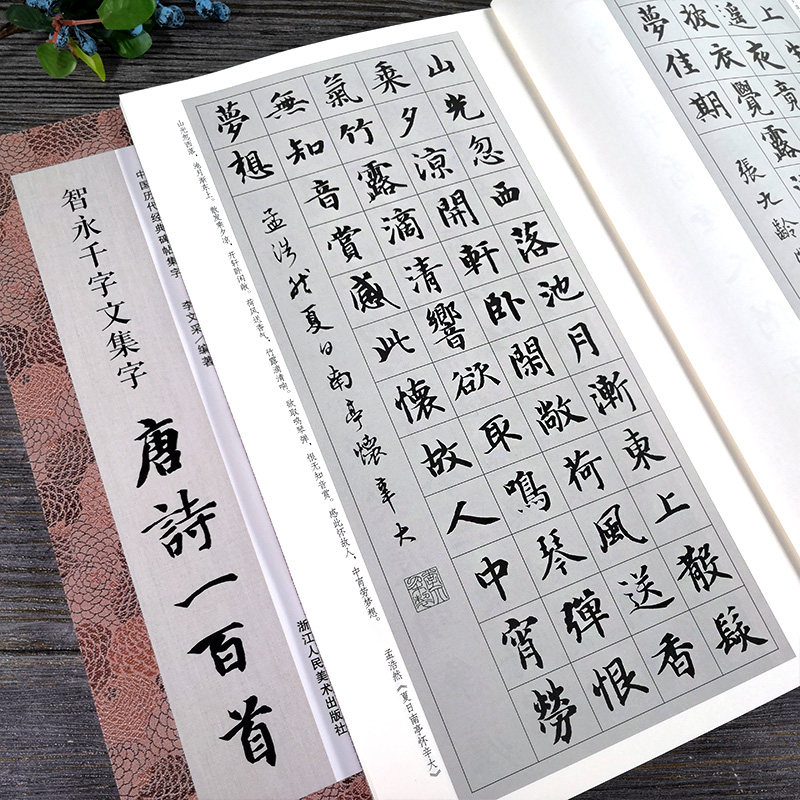 上
遥夜竟
披衣覺露
夢佳期
張九齡
山光忽西落池月漸東上散髮
乘夕涼開軒卧閑敞荷風送香
氣竹露滴清響欲取鳴琴彈恨
無知音賞感此懷故人中宵勞
夢想
孟浩然夏日南亭懷辛大
山光忽西落，池月渐东上。散发乘夕凉，开轩卧闲敞。荷风送香气，竹露滴清响。欲取鸣琴弹，恨无知音赏。感此怀故人，中宵劳梦想。 孟浩然《夏日南亭怀辛大》
中国历代经典碑帖集字 李文采/编著
浙江人民美术出版社
智永千字文集字
唐詩一百首